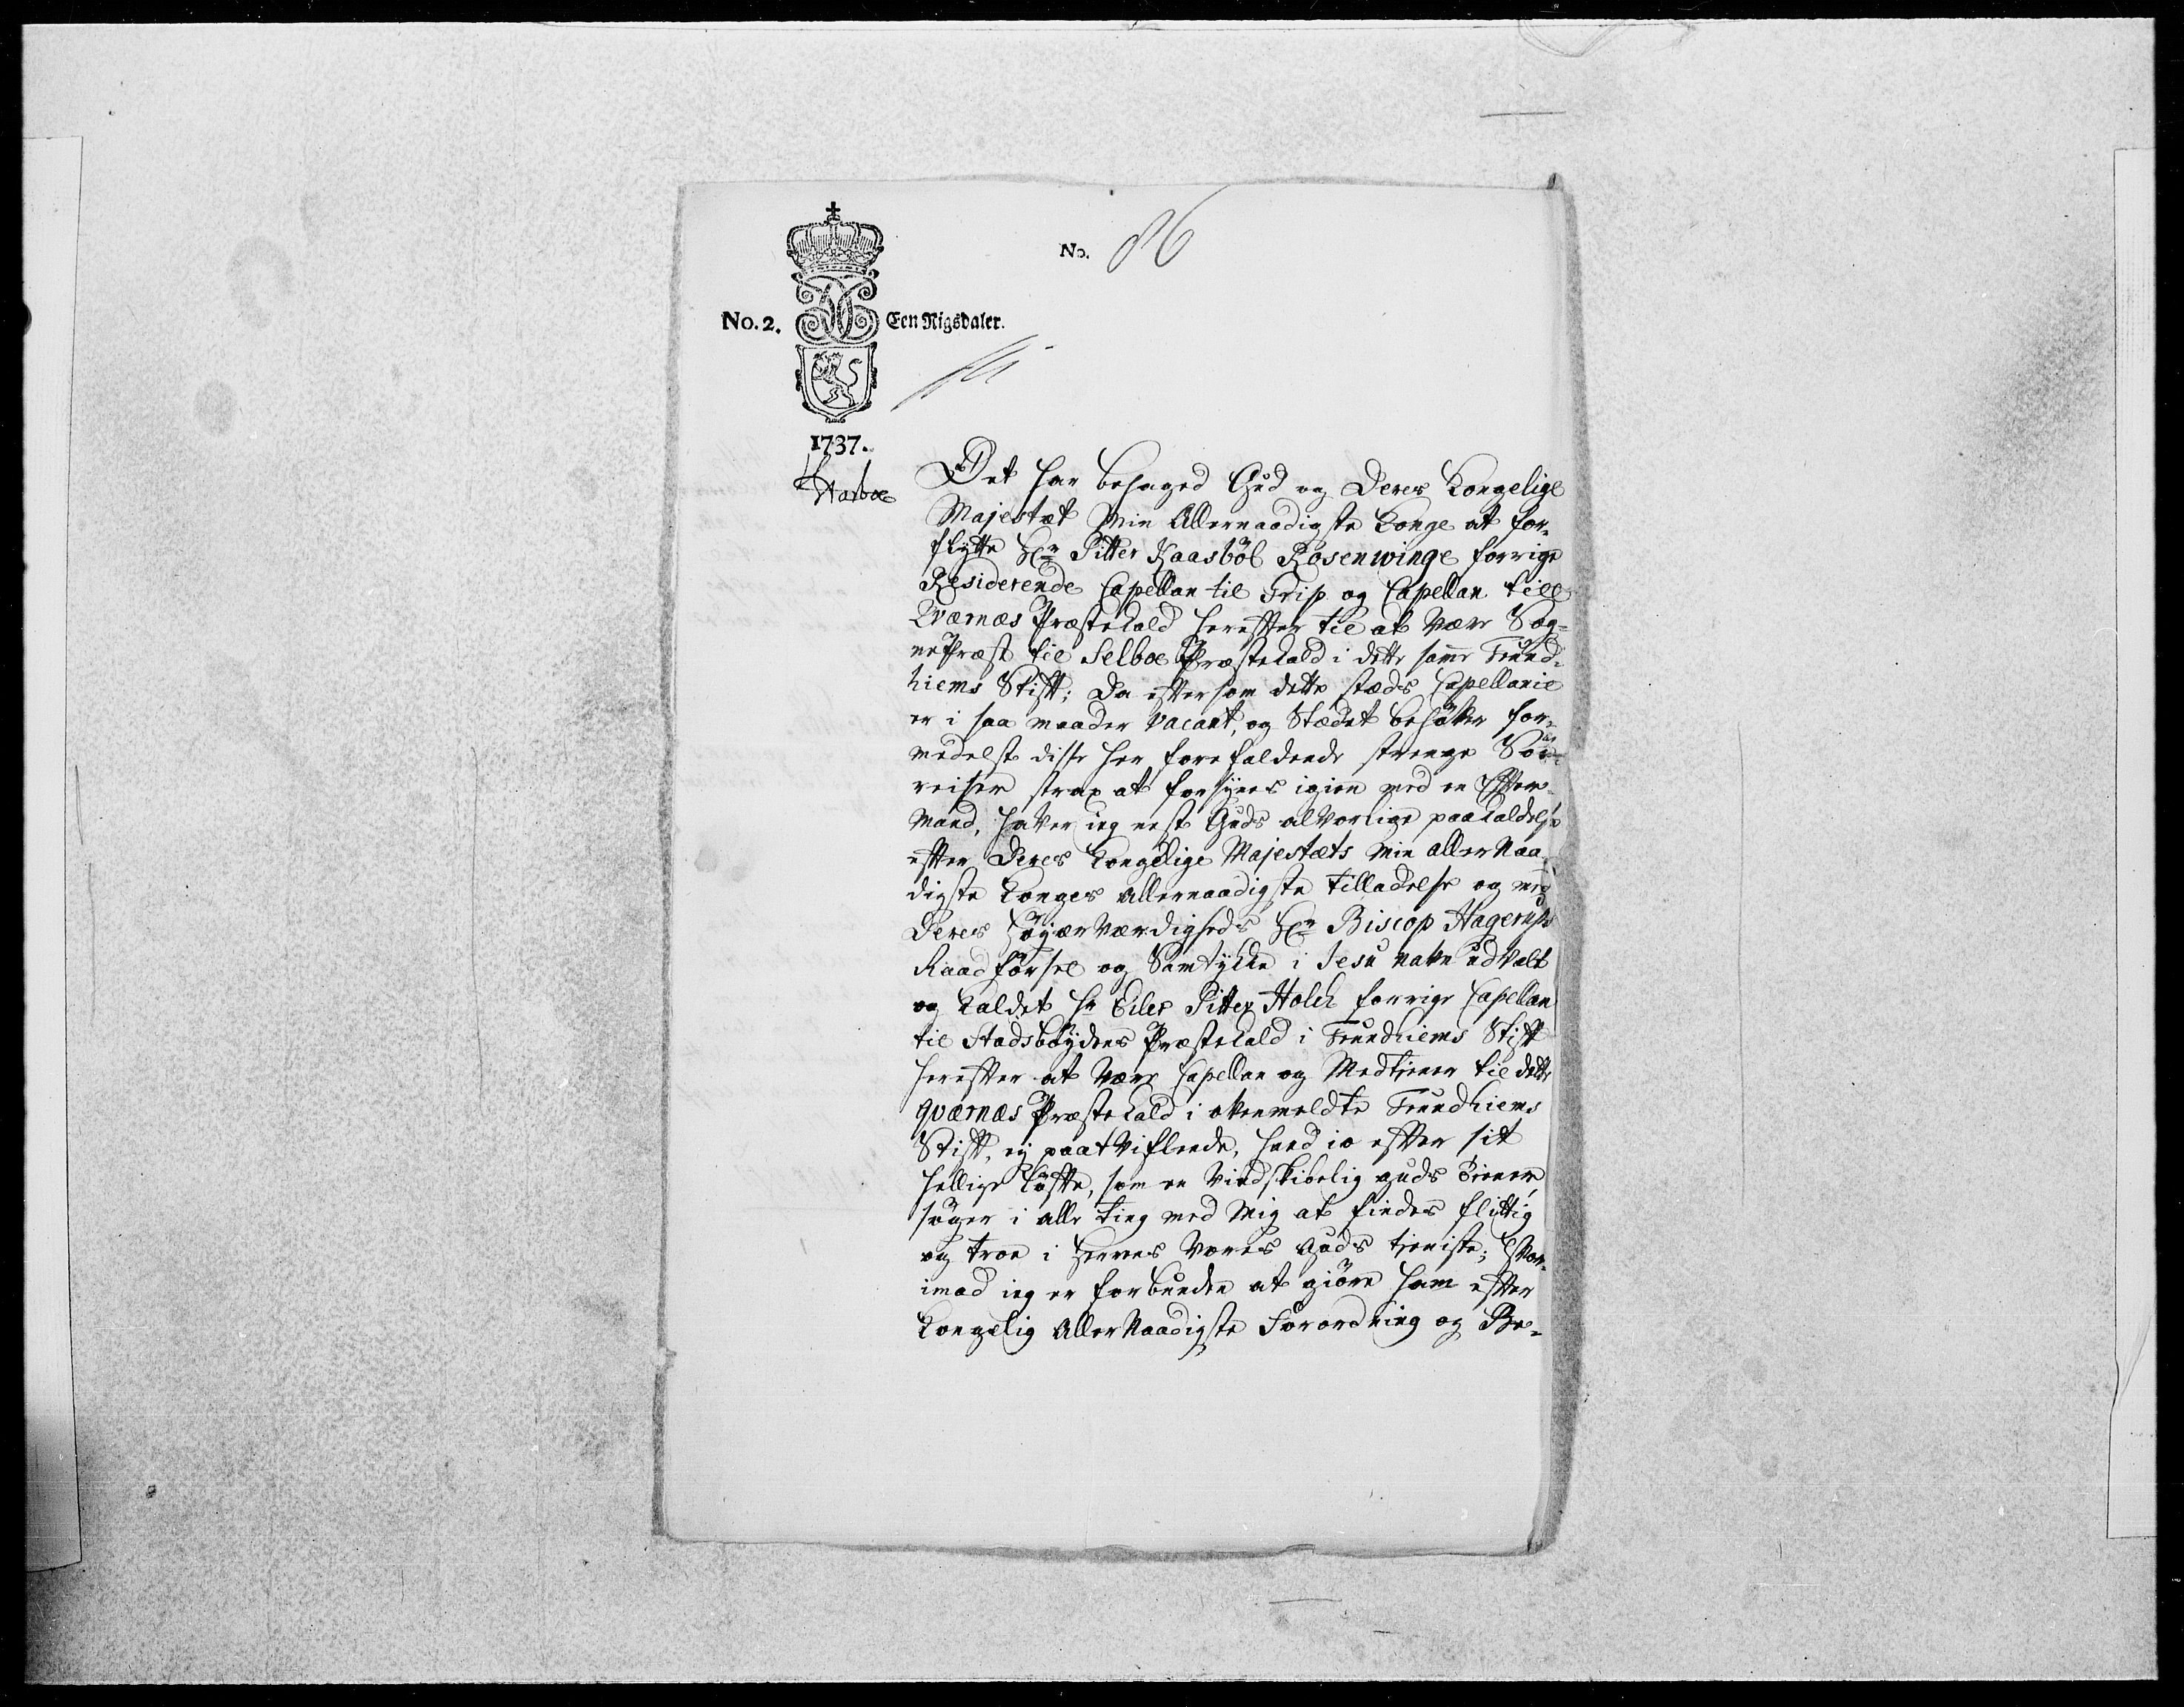 No. 86
No. 2. Een Rigsdaler.
1737.
Harboe
Det har behaged Gud og Deres Kongelige
Majestæt Min Allernaadigste Konge at for-
flytte Hr Pitter Kaasböl Rosenwinge forrige
Residerende Capellan til Grip og Capellan till
Qværnæs Præstekald herefter til at være Sog-
nePræst til Selboe Præstekald i dette samme Trund-
hiems Stift; Da eftersom dette stæds Capellanie
er i saa maader vacant, og Stædet behöver for-
medelst disse her forefaldende strenge Söe-
reiser strax at forsynes igien med en Efter-
mand, haver ieg nest Guds alvorlige paakaldelse
efter Deres Kongelige Majestæts Min allerNaa-
digste Konges allernaadigste tilladelse og med
Deres Höyærværdigheds Hr Biscop Hagerups
Raadförsel og Samtykke i Jesu navn udvalt
og kaldet Hr Eiler Pitter Holck forrige Capellan
til Stadsböydens Præstekald i Trundhiems Stift
herefter at være Capellan og Medtjener til dette
qværnæs Præstekald i ovenmeldte Trundhiems
Stift, ej paatviflende, hand io efter sit
hellige löfte, som en vindskibelig Guds Tienere
söger i alle ting med Mig at findes flittig
og troe i Herrens vores Guds tieniste; Hvor-
imod ieg er forbunden at giöre ham efter
Kongelig AllerNaadigste Forordning og Be-